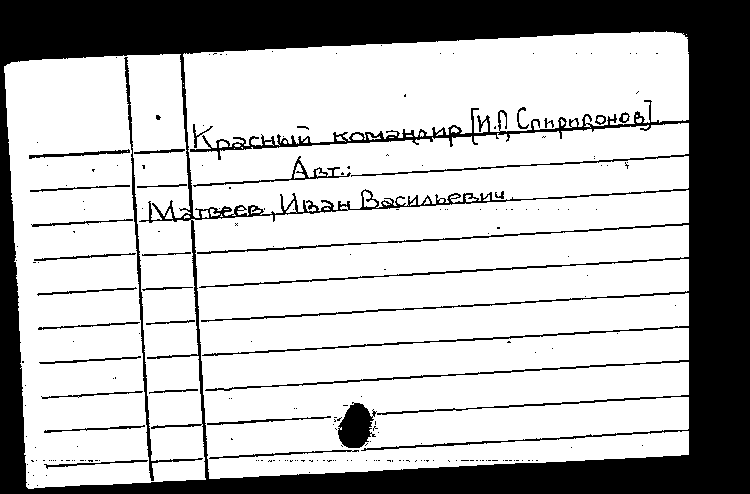 Красный командир [И.П. Спиридонов].
Авт.:
Матвеев, Иван Васильевич.